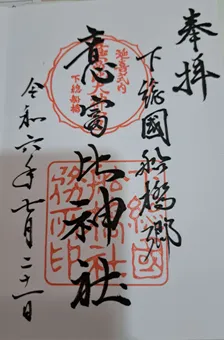 奉拝
下総國船橋郷
意富比神社
令和六年七月二十一日
延喜式内
下総船橋